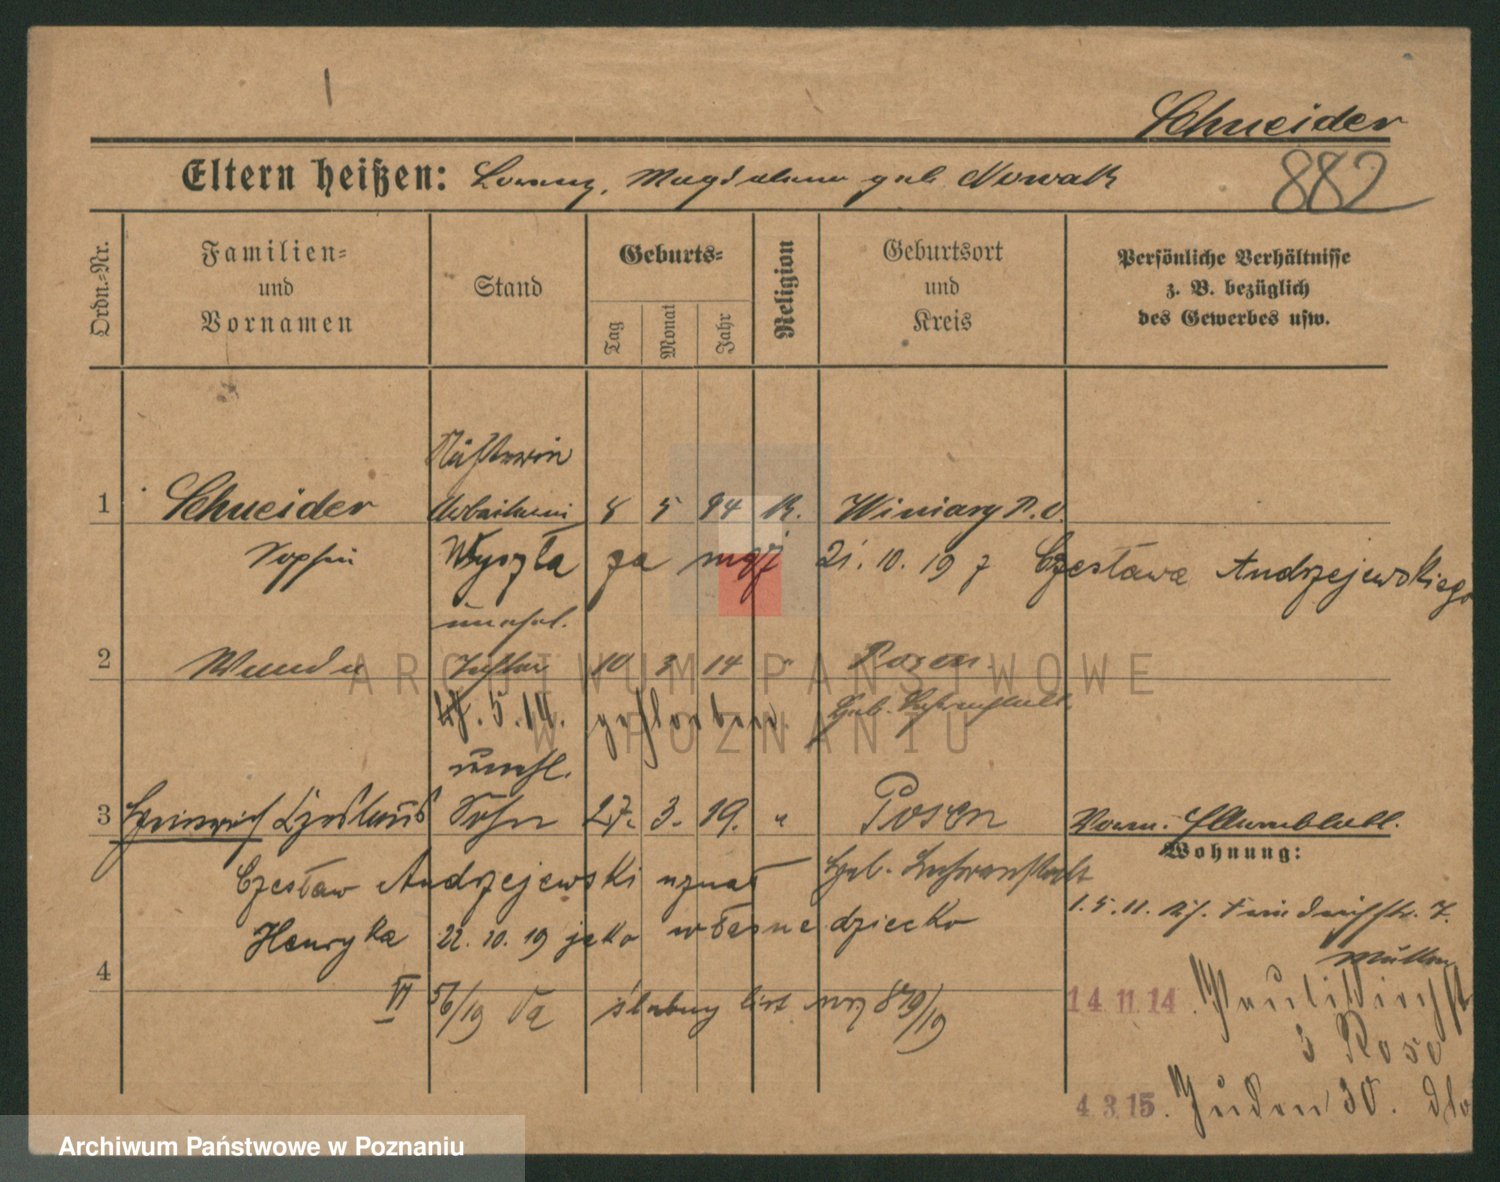 Schneider
882
Eltern heißen: Lorenz, Magdalena geb. Nowak
Ordn.-Nr.
Familien-
und
Vornamen
Stand
Geburts-
Tag
Monat
Jahr
Religion
Geburtsort
und
Kreis
Persönliche Verhältnisse
z. B. bezüglich
des Gewerbes usw.
Näherin
1 Schneider Arbeiterin 8 5 94 K. Winiary P. O.
Sophie Wyszła za mąż 21. 10. 19 z Czesława Andrzejewskiego
unehel.
2 Wanda Tochter 10 3 14 " Posen
5. 14. gestorben.
unehl.
3 Heinrich Sohn 27. 3. 19. " Posen
Wohnung:
Czesław Andrzejewski uznał
Henryka 22. 10. 19 jako własne dziecko
4
VI 56/19 ślubny list 879/19
14. 11. 14.
3
4. 3. 15. Juden 30.
ARCHIWUM PAŃSTWOWE
W POZNANIU
Archiwum Państwowe w Poznaniu